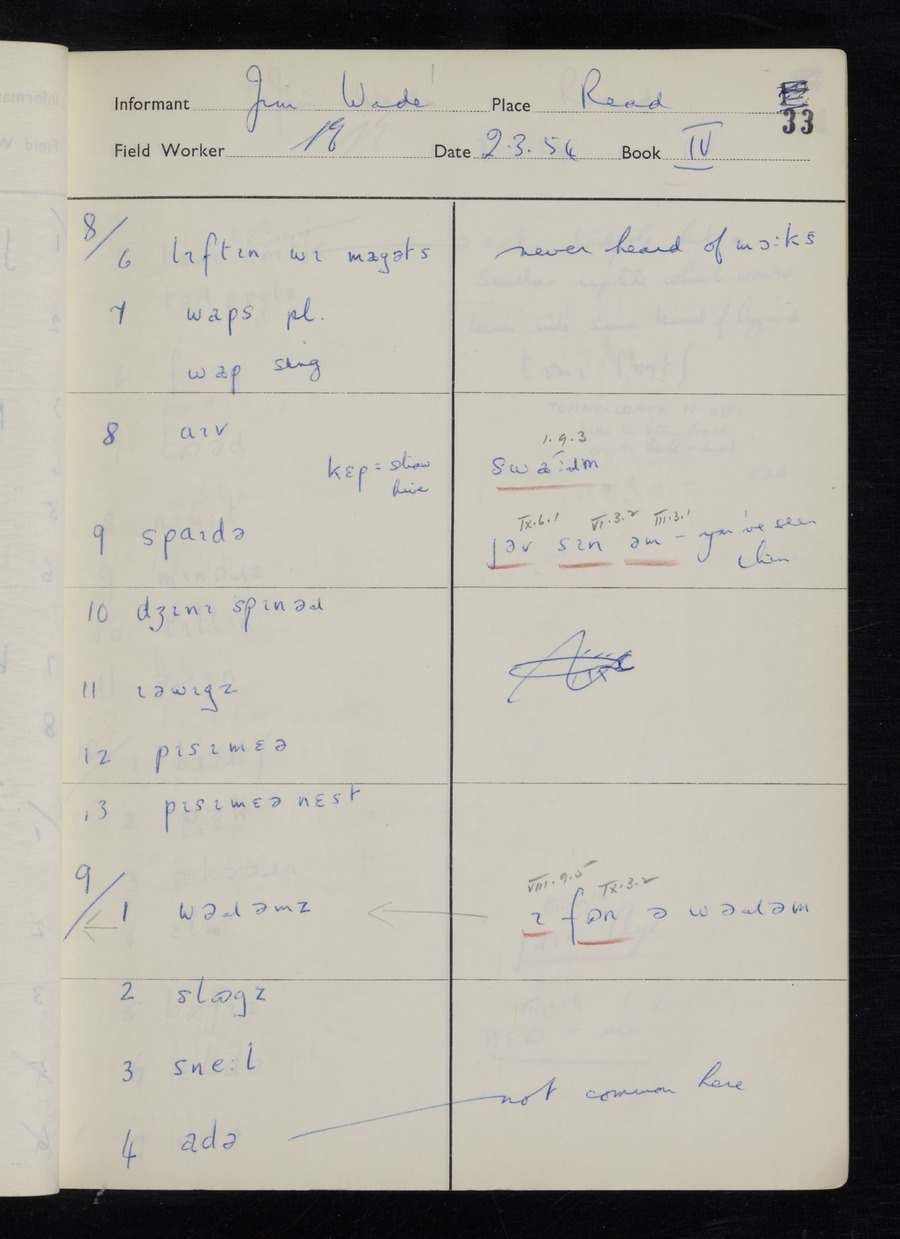 Informant Jim Wade Place Read
33
Field Worker Date 2.3.54 Book IV
8/
6 lɪftɪn wɪ maɡəts never heard of mɔːks
7 waps pl.
wap sing
8 aɪv
kɛp = straw
hive
1.9.3
swaːɹm
9 spaɪdə
IX.6.1 VI.3.2 III.3.1
jəv sɪn əm – you've seen
them
10 dʒɪnɪ spɪnəɹ
11 ɪəwɪɡz
12 pɪsɪmɛə
13 pɪsɪmɛə nɛst
9/
VIII.9.5 IX.3.2
1 wəɹəmz ɪ fɷn ə wəɹəm
2 slɷɡz
3 sneːl
4 adə not common here